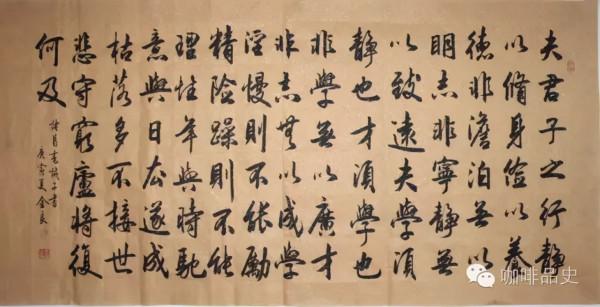 夫君子之行静
以脩身儉以養
德非澹泊無以
明志非寧静無
以致遠夫學須
静也才須學也
非學無以廣才
非志無以成學
淫慢則不能勵
精險躁則不能
理性年與時馳
意與日去遂成
枯落多不接世
悲守窮廬將復
何及
諸葛亮誡子書
庚寅夏金良
咖啡品史